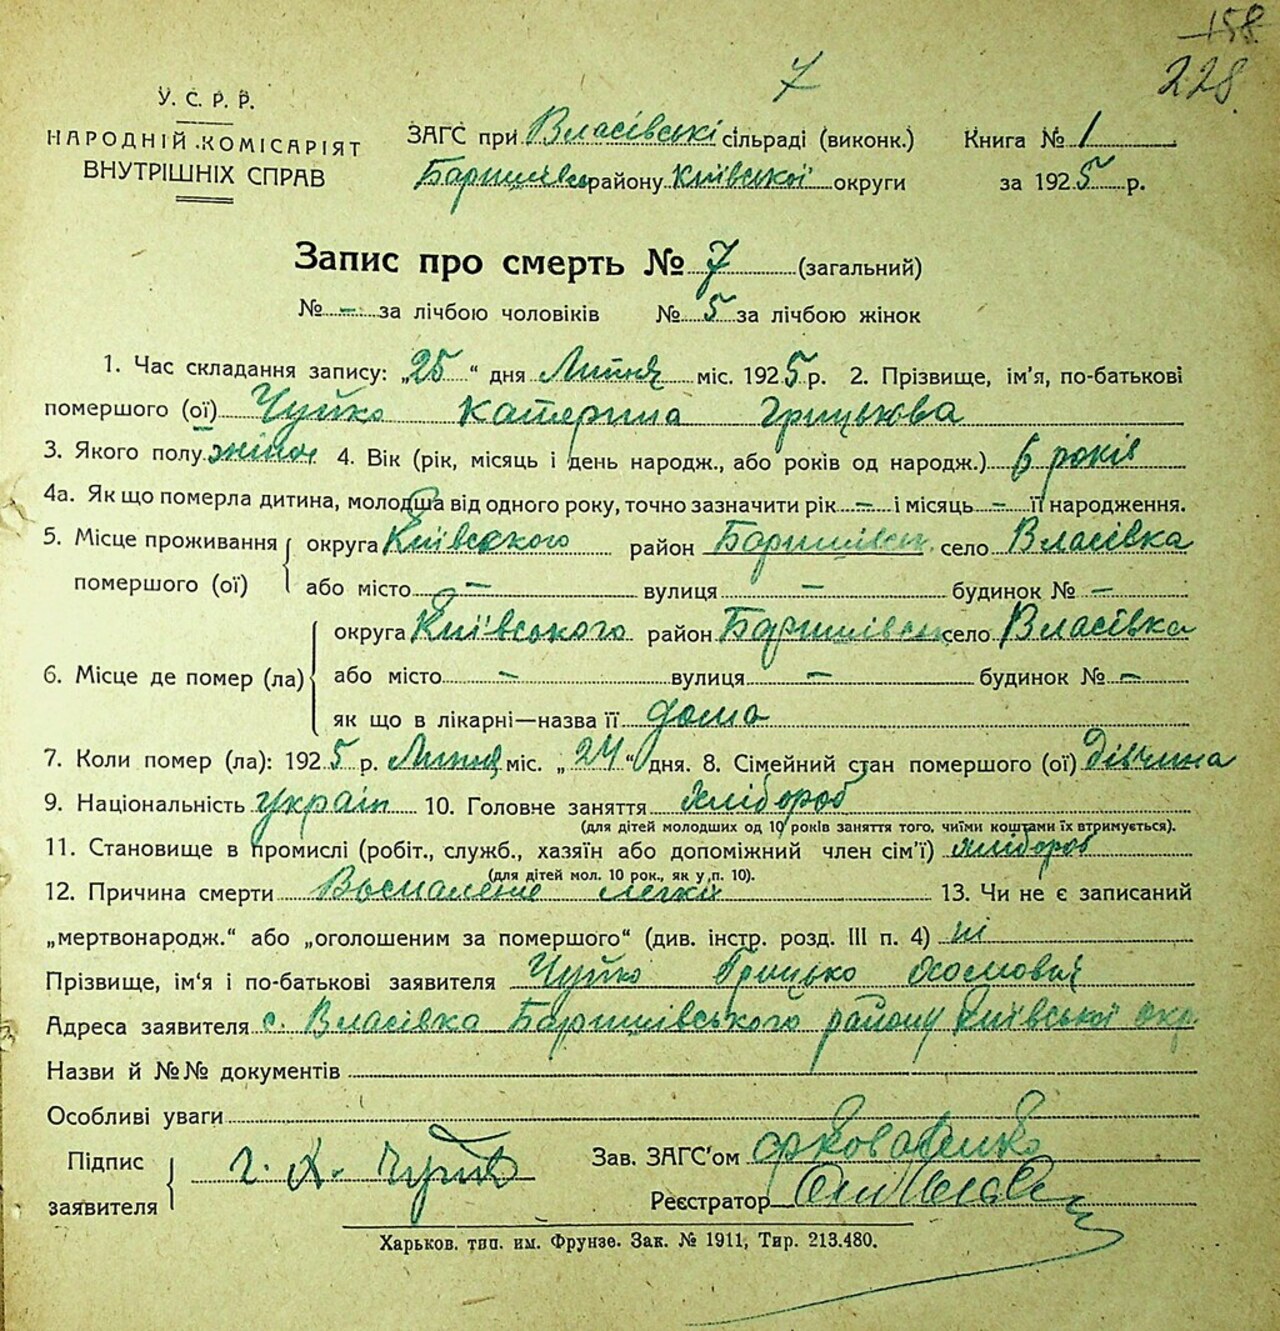 158
228
7
У. С. Р. Р.
НАРОДНІЙ КОМІСАРІЯТ
ВНУТРІШНІХ СПРАВ
ЗАГС при Власівські сільраді (виконк.)
Баришівськ району Київської округи
Книга № 1
за 1925 р.
Запис про смерть № 7 (загальний)
№ – за лічбою чоловіків № 5 за лічбою жінок
1. Час складання запису: „25“ дня Липня міс. 1925 р. 2. Прізвище, ім'я, по-батькові
помершого (ої) Чуйко Катерина Грицькова
3. Якого полу жіноч 4. Вік (рік, місяць і день народж., або років од народж.) 6 років
4а. Як що померла дитина, молодша від одного року, точно зазначити рік – і місяць – її народження.
5. Місце проживання округа Київського район Баришівськ село Власівка
помершого (ої) або місто – вулиця – будинок № –
округа Київського район Баришівськ село Власівка
6. Місце де помер (ла) або місто – вулиця – будинок № –
як що в лікарні—назва її дома
7. Коли помер (ла): 1925 р. Липня міс. „24“ дня. 8. Сімейний стан помершого (ої) дівчина
9. Національність україн 10. Головне заняття хлібороб
(для дітей молодших од 10 років заняття того, чиїми коштами їх втримується).
11. Становище в промислі (робіт., служб., хазяїн або допоміжний член сім'ї) хлібороб
(для дітей мол. 10 рок., як у п. 10).
12. Причина смерти Воспаление легких 13. Чи не є записаний
„мертвонародж.“ або „оголошеним за помершого“ (див. інстр. розд. III п. 4) ні
Прізвище, ім'я і по-батькові заявителя Чуйко Грицько Хомович
Адреса заявителя с. Власівка Баришівського району Київської окр.
Назви й №№ документів
Особливі уваги
Підпис
заявителя Г. Х. Чуйко
Зав. ЗАГС'ом
Реєстратор
Харьков. тип. им. Фрунзе. Зак. № 1911, Тир. 213.480.